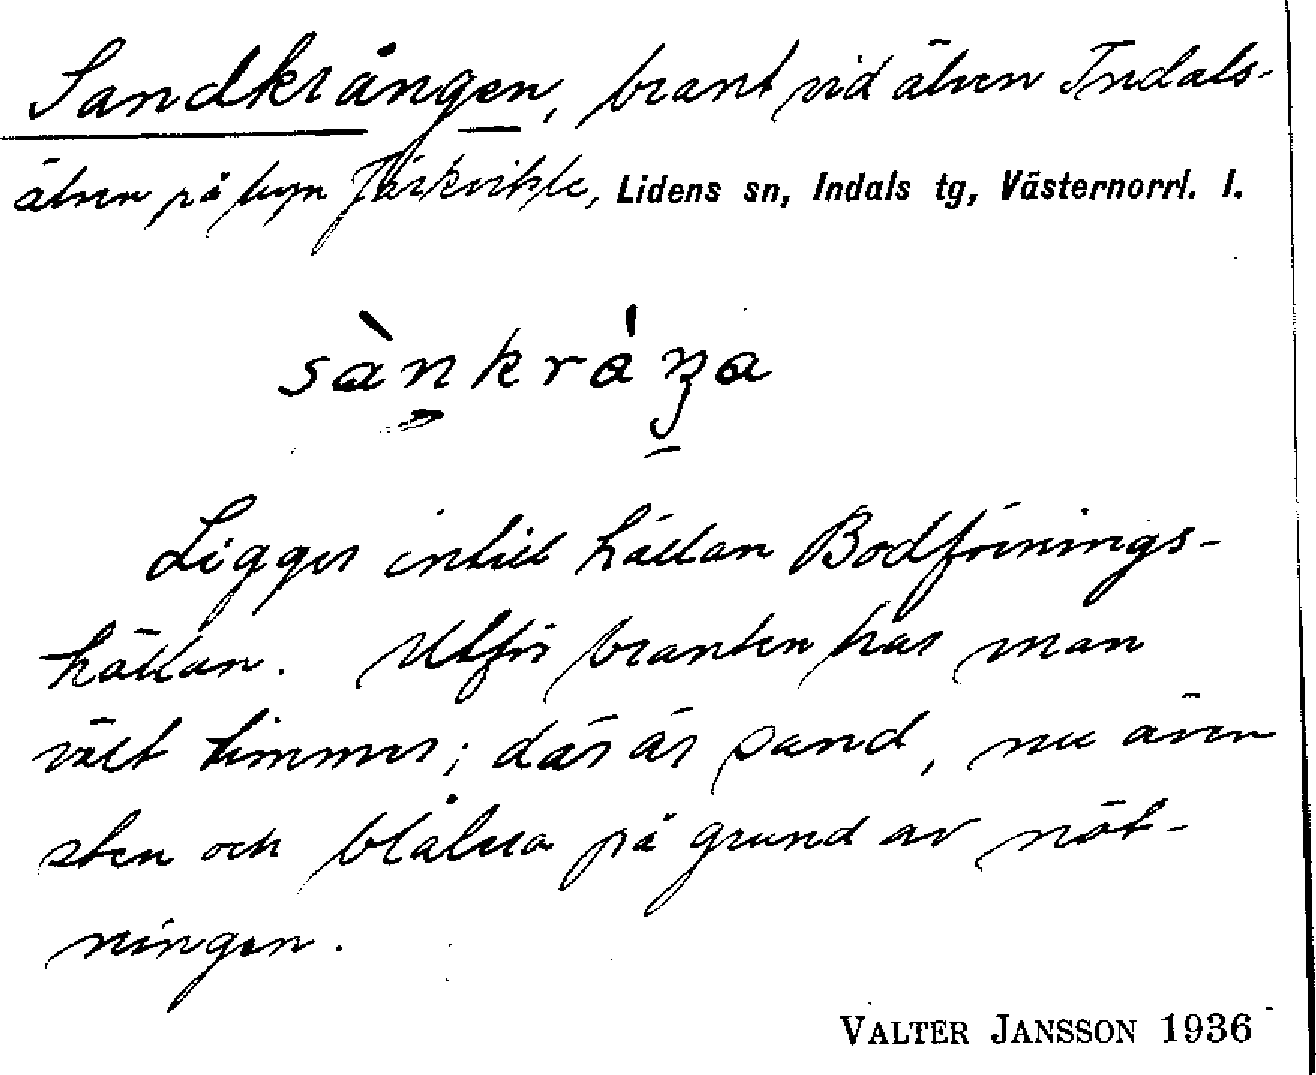 Sandkrången, brant vid älven Indals-
älven på byn Järkvitsle, Lidens sn, Indals tg, Västernorrl. l.
sànkráŋa
Ligger intill hällan Bodföinings-
hällan. Utför branten har man
vält timmer; där är sand, nu även
sten och blålera på grund av nöt-
ningen.
VALTER JANSSON 1936